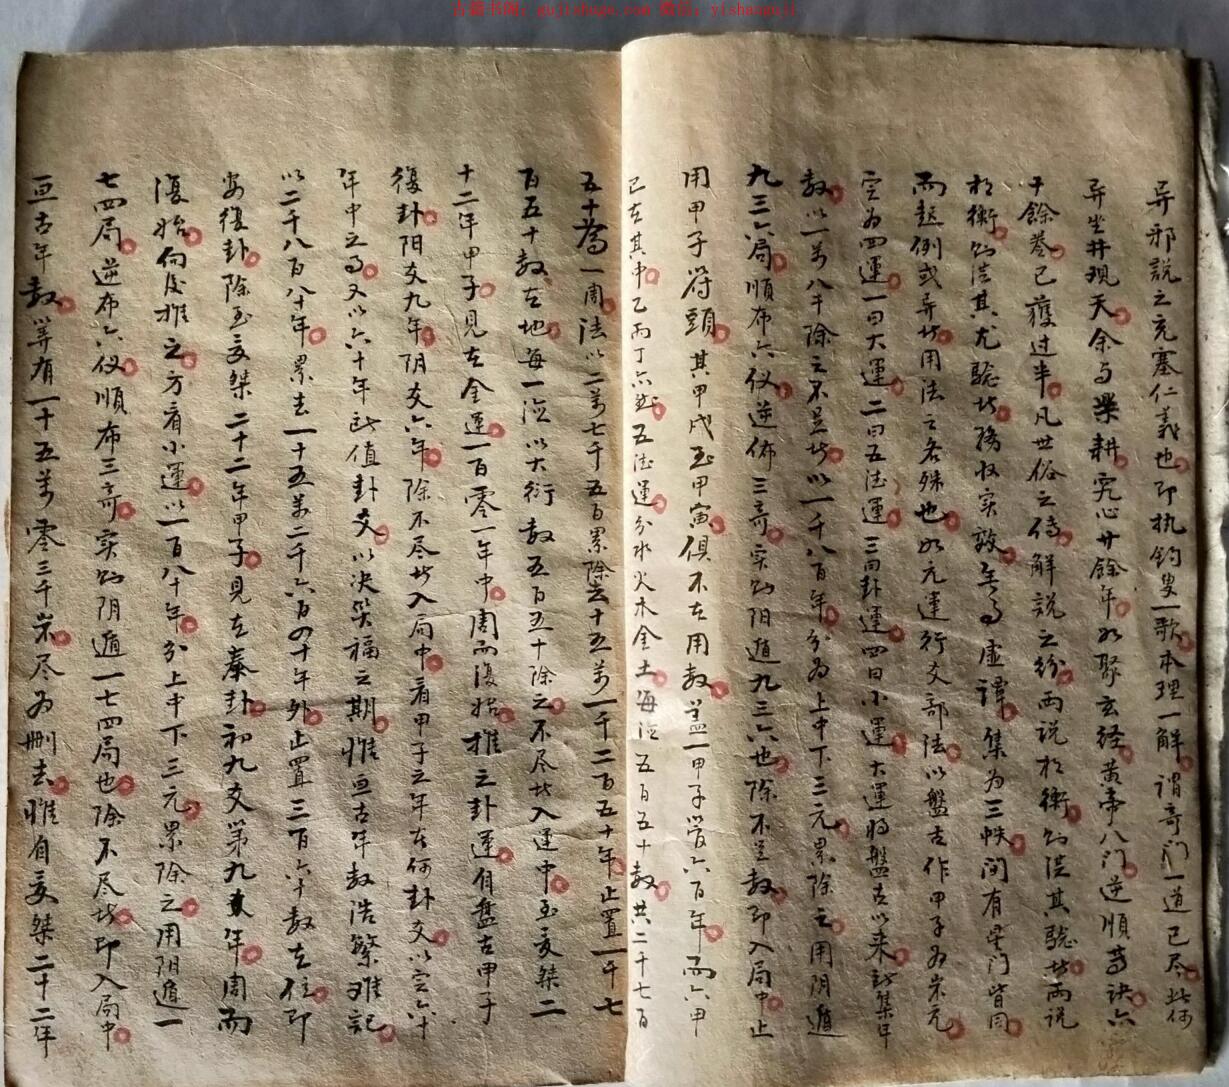 古籍书阁：gujishuge.com 微信：yishanguji
异邪説之充塞仁義也即执钓叟一歌本理一解謂奇门一道已尽此何
异坐井現天余与耕究心廿餘年如聚玄経黄帝八门逆順等訣六
十餘巻已獲过半凡世俗之傳解説之紛两説权衡以法其驗此两説
权衡以法其尤驗此務收实效年与虚譚集为三帙间有星门皆同
而起例或异此用法之各殊也如元運行爻部法以盤古作甲子为宋元
定为四運一曰大運二曰五法運三曰卦運四曰小運大運将盤古以来集年
数以一萬八千除之不足此以一千八百年分为上中下三元累除之用阴遁
九三六局順布六仪逆佈三奇实以阳遁九三六也除不足数即入局中止
用甲子符頭其甲戍至甲寅俱不在用数盖一甲子管六百年而六甲
已在其中乙丙丁亦然五法運分水火木金土每法五百五十数共二千七百
五十為一周法以二萬七千五百累除去十五萬一千二百五十年止置一千七
百五十数在地每一法以大衍数五百五十除之不尽此入運中至夏桀二
十二年甲子見在金運一百零一年中周而復始推之卦運自盤古甲子
復卦阳爻九年阴爻六年除不尽此入局中看甲子之年在何卦爻以定六十
年中之局又以六十年值卦爻以决災福之期惟亘古年数浩繁难記
以二千八百八十年累去一十五萬二千六百四十年外止置三百六十数在位即
安復卦除至夏桀二十二年甲子見在卦初九爻第九年周而
復始向後推之方看小運以一百八十年分上中下三元累除之用阴遁一
七四局逆布六仪順布三奇实以阴遁一七四局也除不尽此即入局中
亘古年数算有一十五萬零三千尽为删去惟自夏桀二十二年